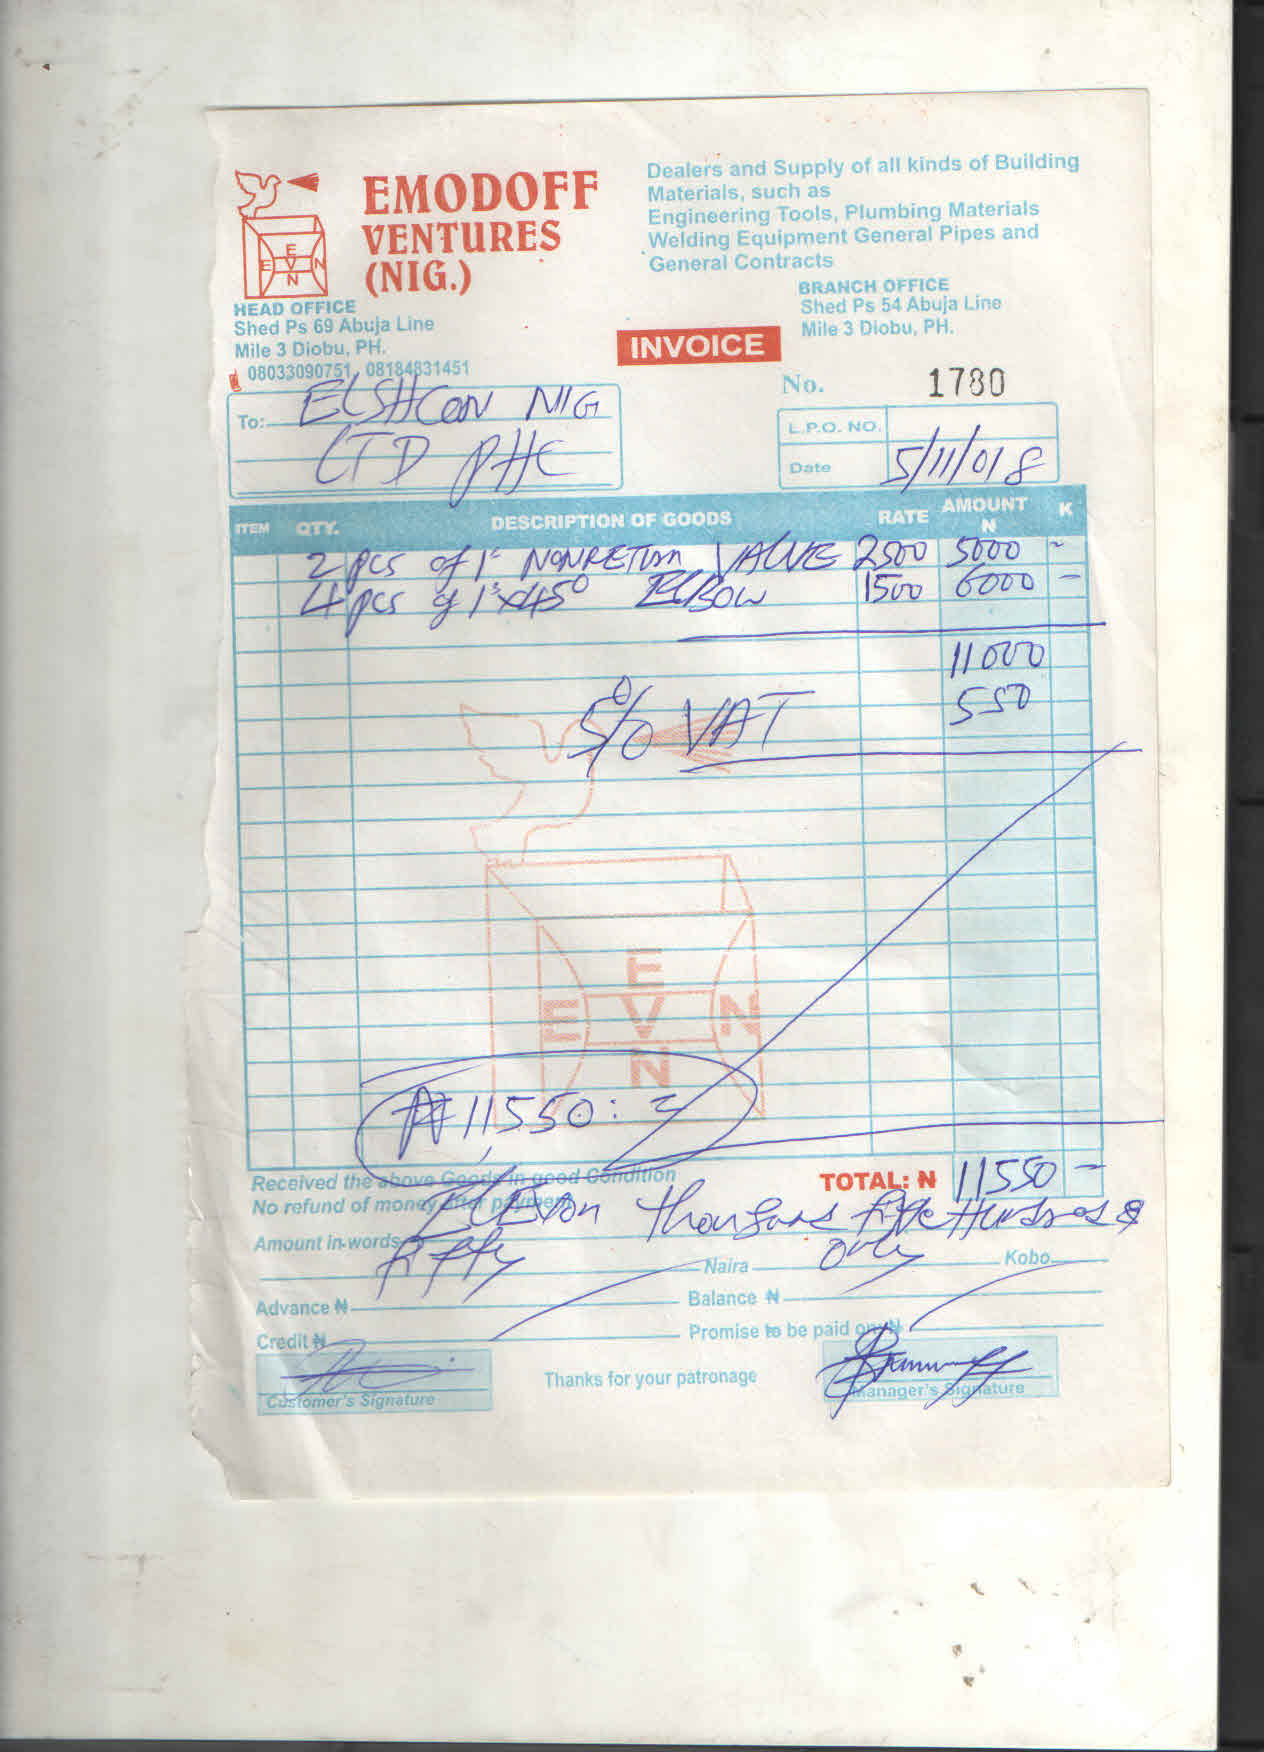 EMODOFF
VENTURES
(NIG.)
Dealers and Supply of all kinds of Building
Materials, such as
Engineering Tools, Plumbing Materials
Welding Equipment General Pipes and
General Contracts
E
E V N
N
HEAD OFFICE
Shed Ps 69 Abuja Line
Mile 3 Diobu, PH.
08033090751, 08184831451
BRANCH OFFICE
Shed Ps 54 Abuja Line
Mile 3 Diobu, PH.
INVOICE
No. 1780
To: ELSHCON NIG
LTD PHC
L.P.O. NO.
Date 5/11/018
ITEM QTY. DESCRIPTION OF GOODS RATE AMOUNT N K
2 pcs of 1" NONRETURN VALVE 2500 5000 -
4 pcs of 1"x45° ELBOW 1500 6000 -
11000
5% VAT 550
E
E V N
N
₦11,550:=
Received the above Goods in good Condition
No refund of money after payment
TOTAL: ₦ 11550 -
Amount in-words Eleven thousand five Hundred &
fifty Naira only Kobo
Advance ₦ Balance ₦
Credit ₦ Promise to be paid on ₦
Customer's Signature Thanks for your patronage Manager's Signature